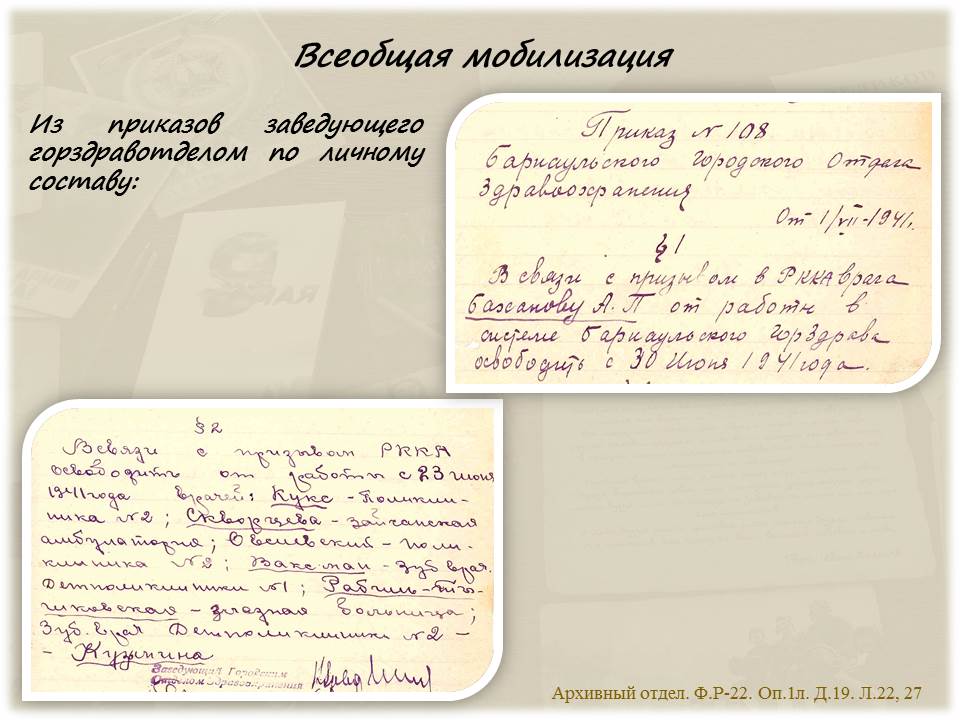 Всеобщая мобилизация
Из приказов заведующего
горздравотделом по личному
составу:
Приказ № 108
Барнаульского Городского Отдела
Здравоохранения
От 1/VII-1941г.
§ 1
В связи с призывом в РККА врача
Бажанову А.П от работы в
системе Барнаульского ГорЗдрава
освободить с 30 Июня 1941 года.
§ 2
Всвязи с призывом РККА
освободить от работы с 23 июня
1941 года врачей: Кукс - Поликли-
ника №2; Скворцева - Зайчанская
амбулатория; Овсиевский - поли-
клиника №2; Ваксман - Зуб врач.
Детполиклиники №1;
- глазная больница;
Зуб. врач Детполиклиники №2 -
- Кузмина
Заведующий Городским
Отделом Здравоохранения
Архивный отдел. Ф.Р-22. Оп.1л. Д.19. Л.22, 27